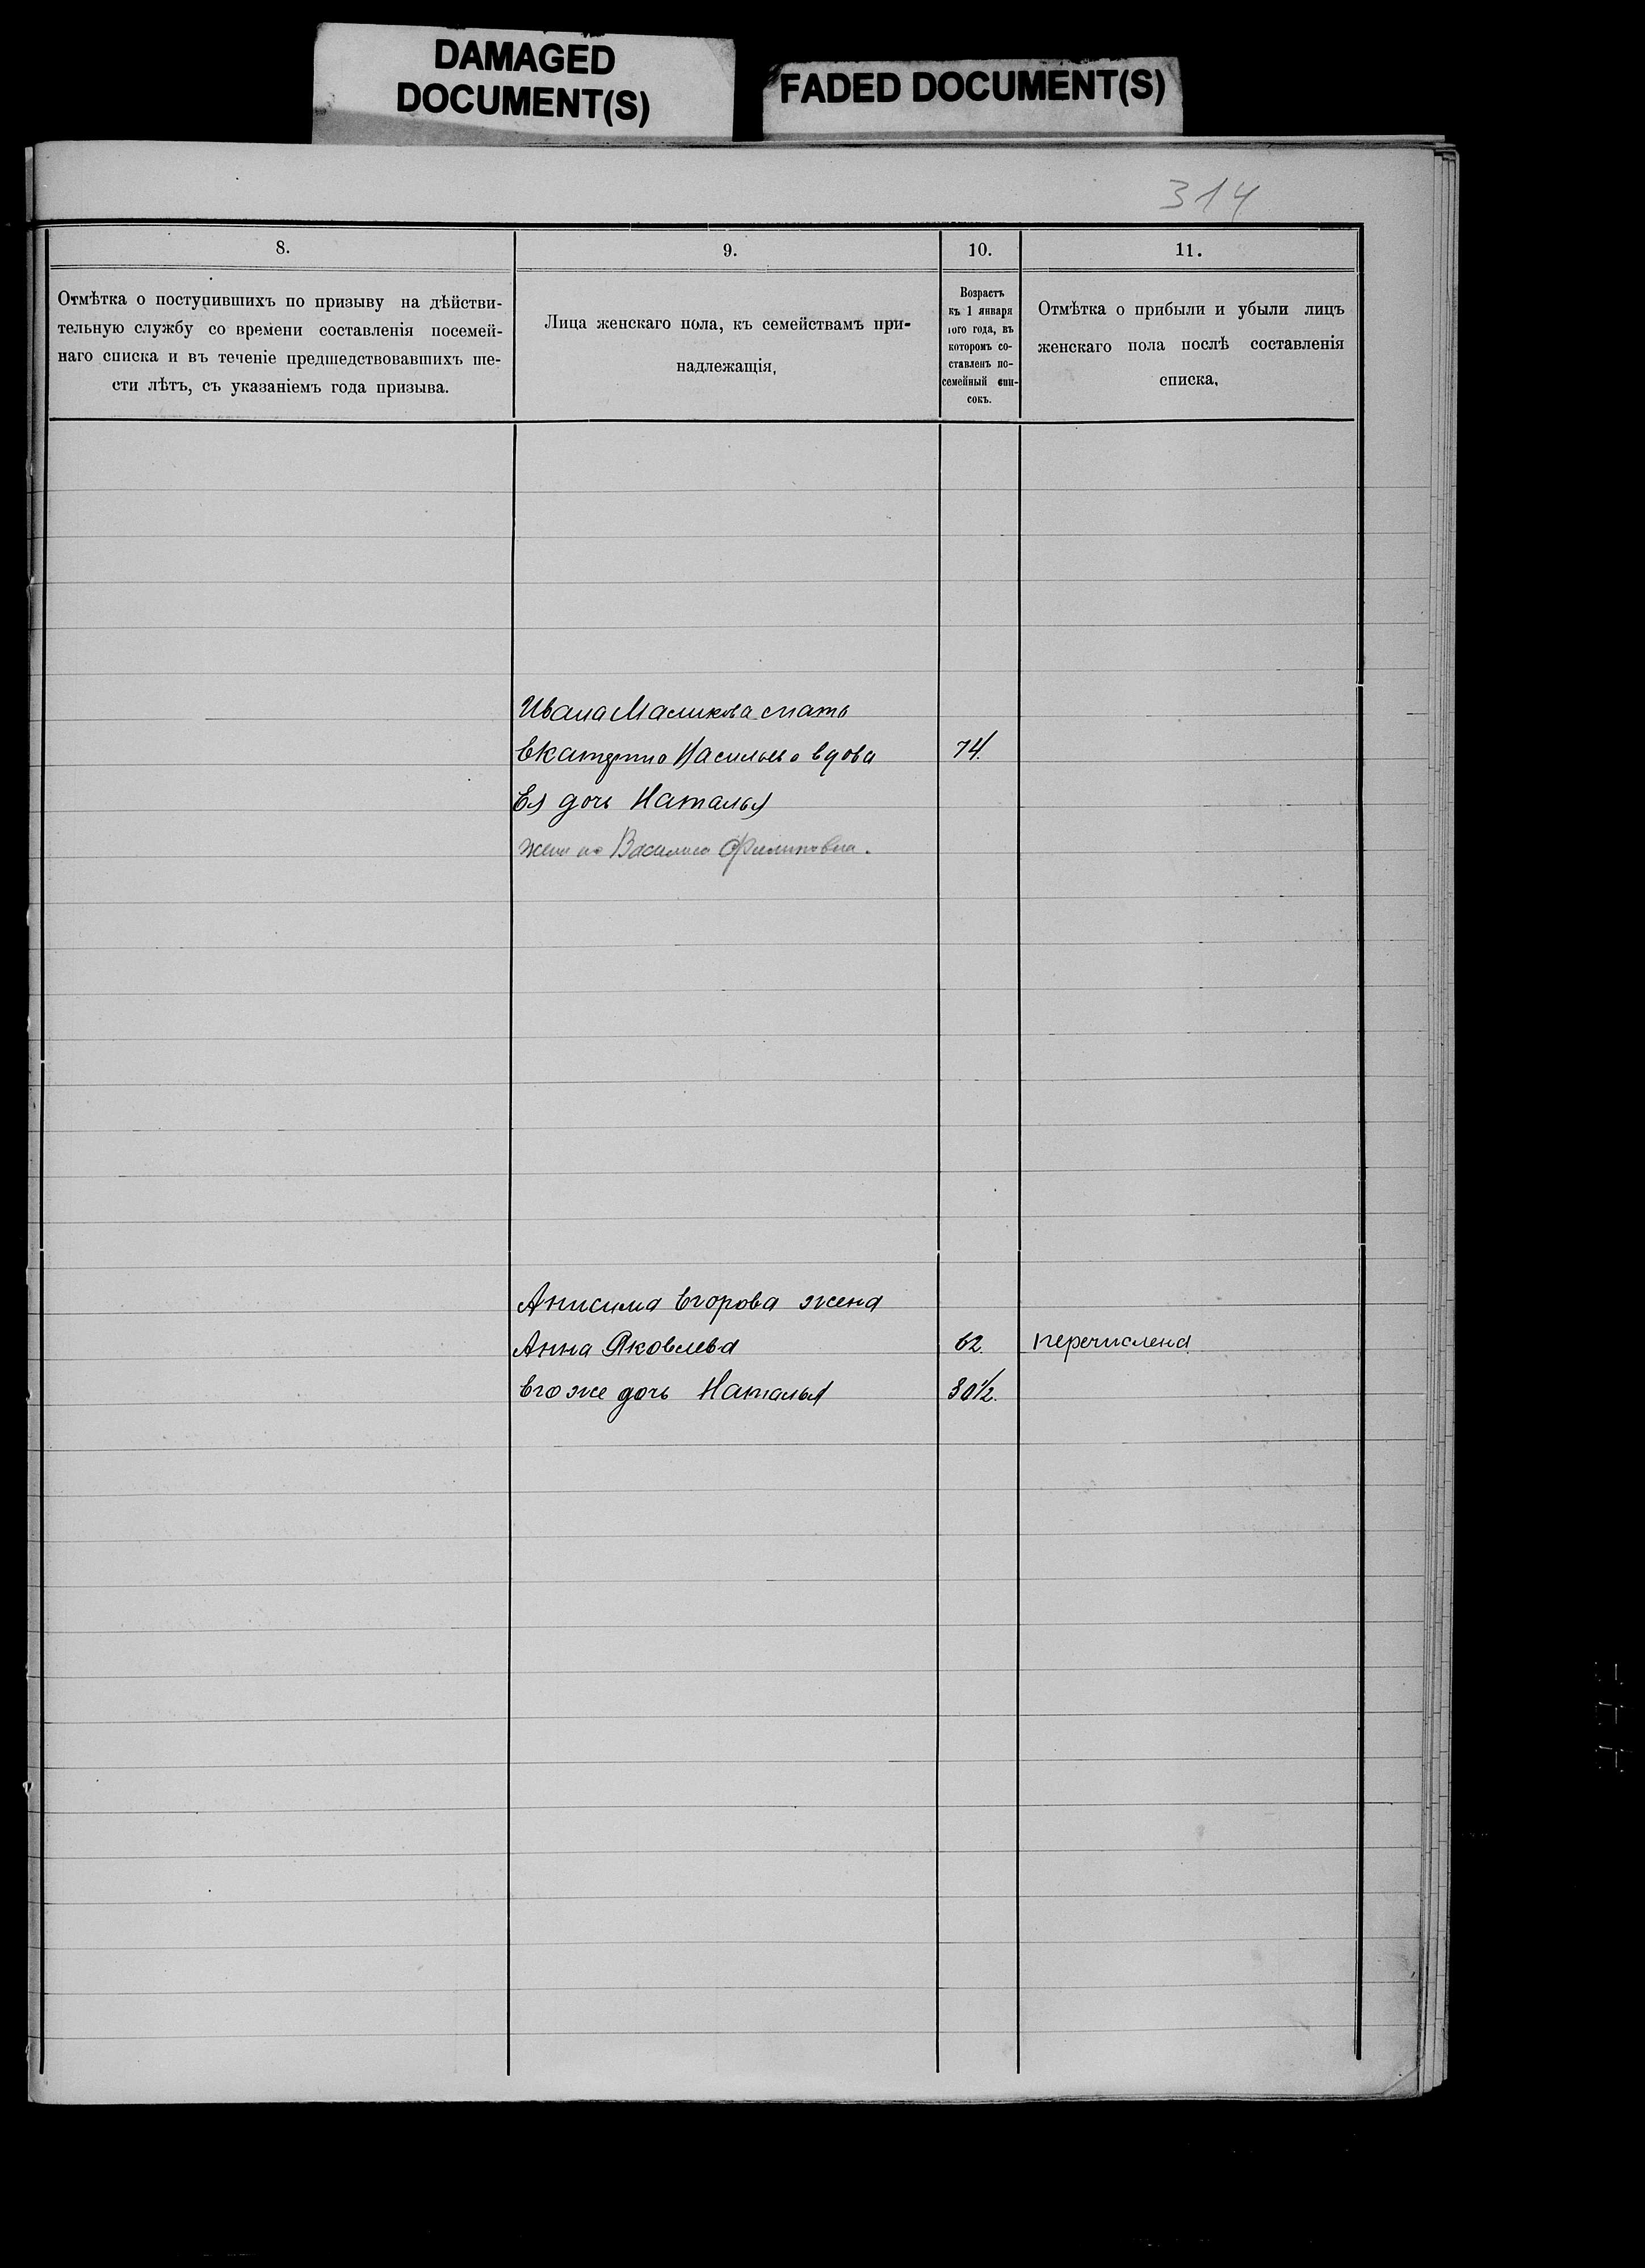 DAMAGED
DOCUMENT(S)
FADED DOCUMENT(S)
314
8.
9.
10.
11.
Отмѣтка о поступившихъ по призыву на дѣйстви-
тельную службу со времени составленія посемей-
наго списка и въ теченіе предшедствовавшихъ ше-
сти лѣтъ, съ указаніемъ года призыва.
Лица женскаго пола, къ семействамъ при-
надлежащія,
Возрастъ
къ 1 января
того года, въ
которомъ со-
ставленъ по-
семейный спи-
сокъ.
Отмѣтка о прибыли и убыли лицъ
женскаго пола послѣ составленія
списка.
Ивана Маликова мать
Екатерина Васильева вдова 74.
Ея дочь Наталья
жена Василиса Филиповна.
Анисима Егорова жена
Анна Яковлева 62. перечислена
Его же дочь Наталья 30½.